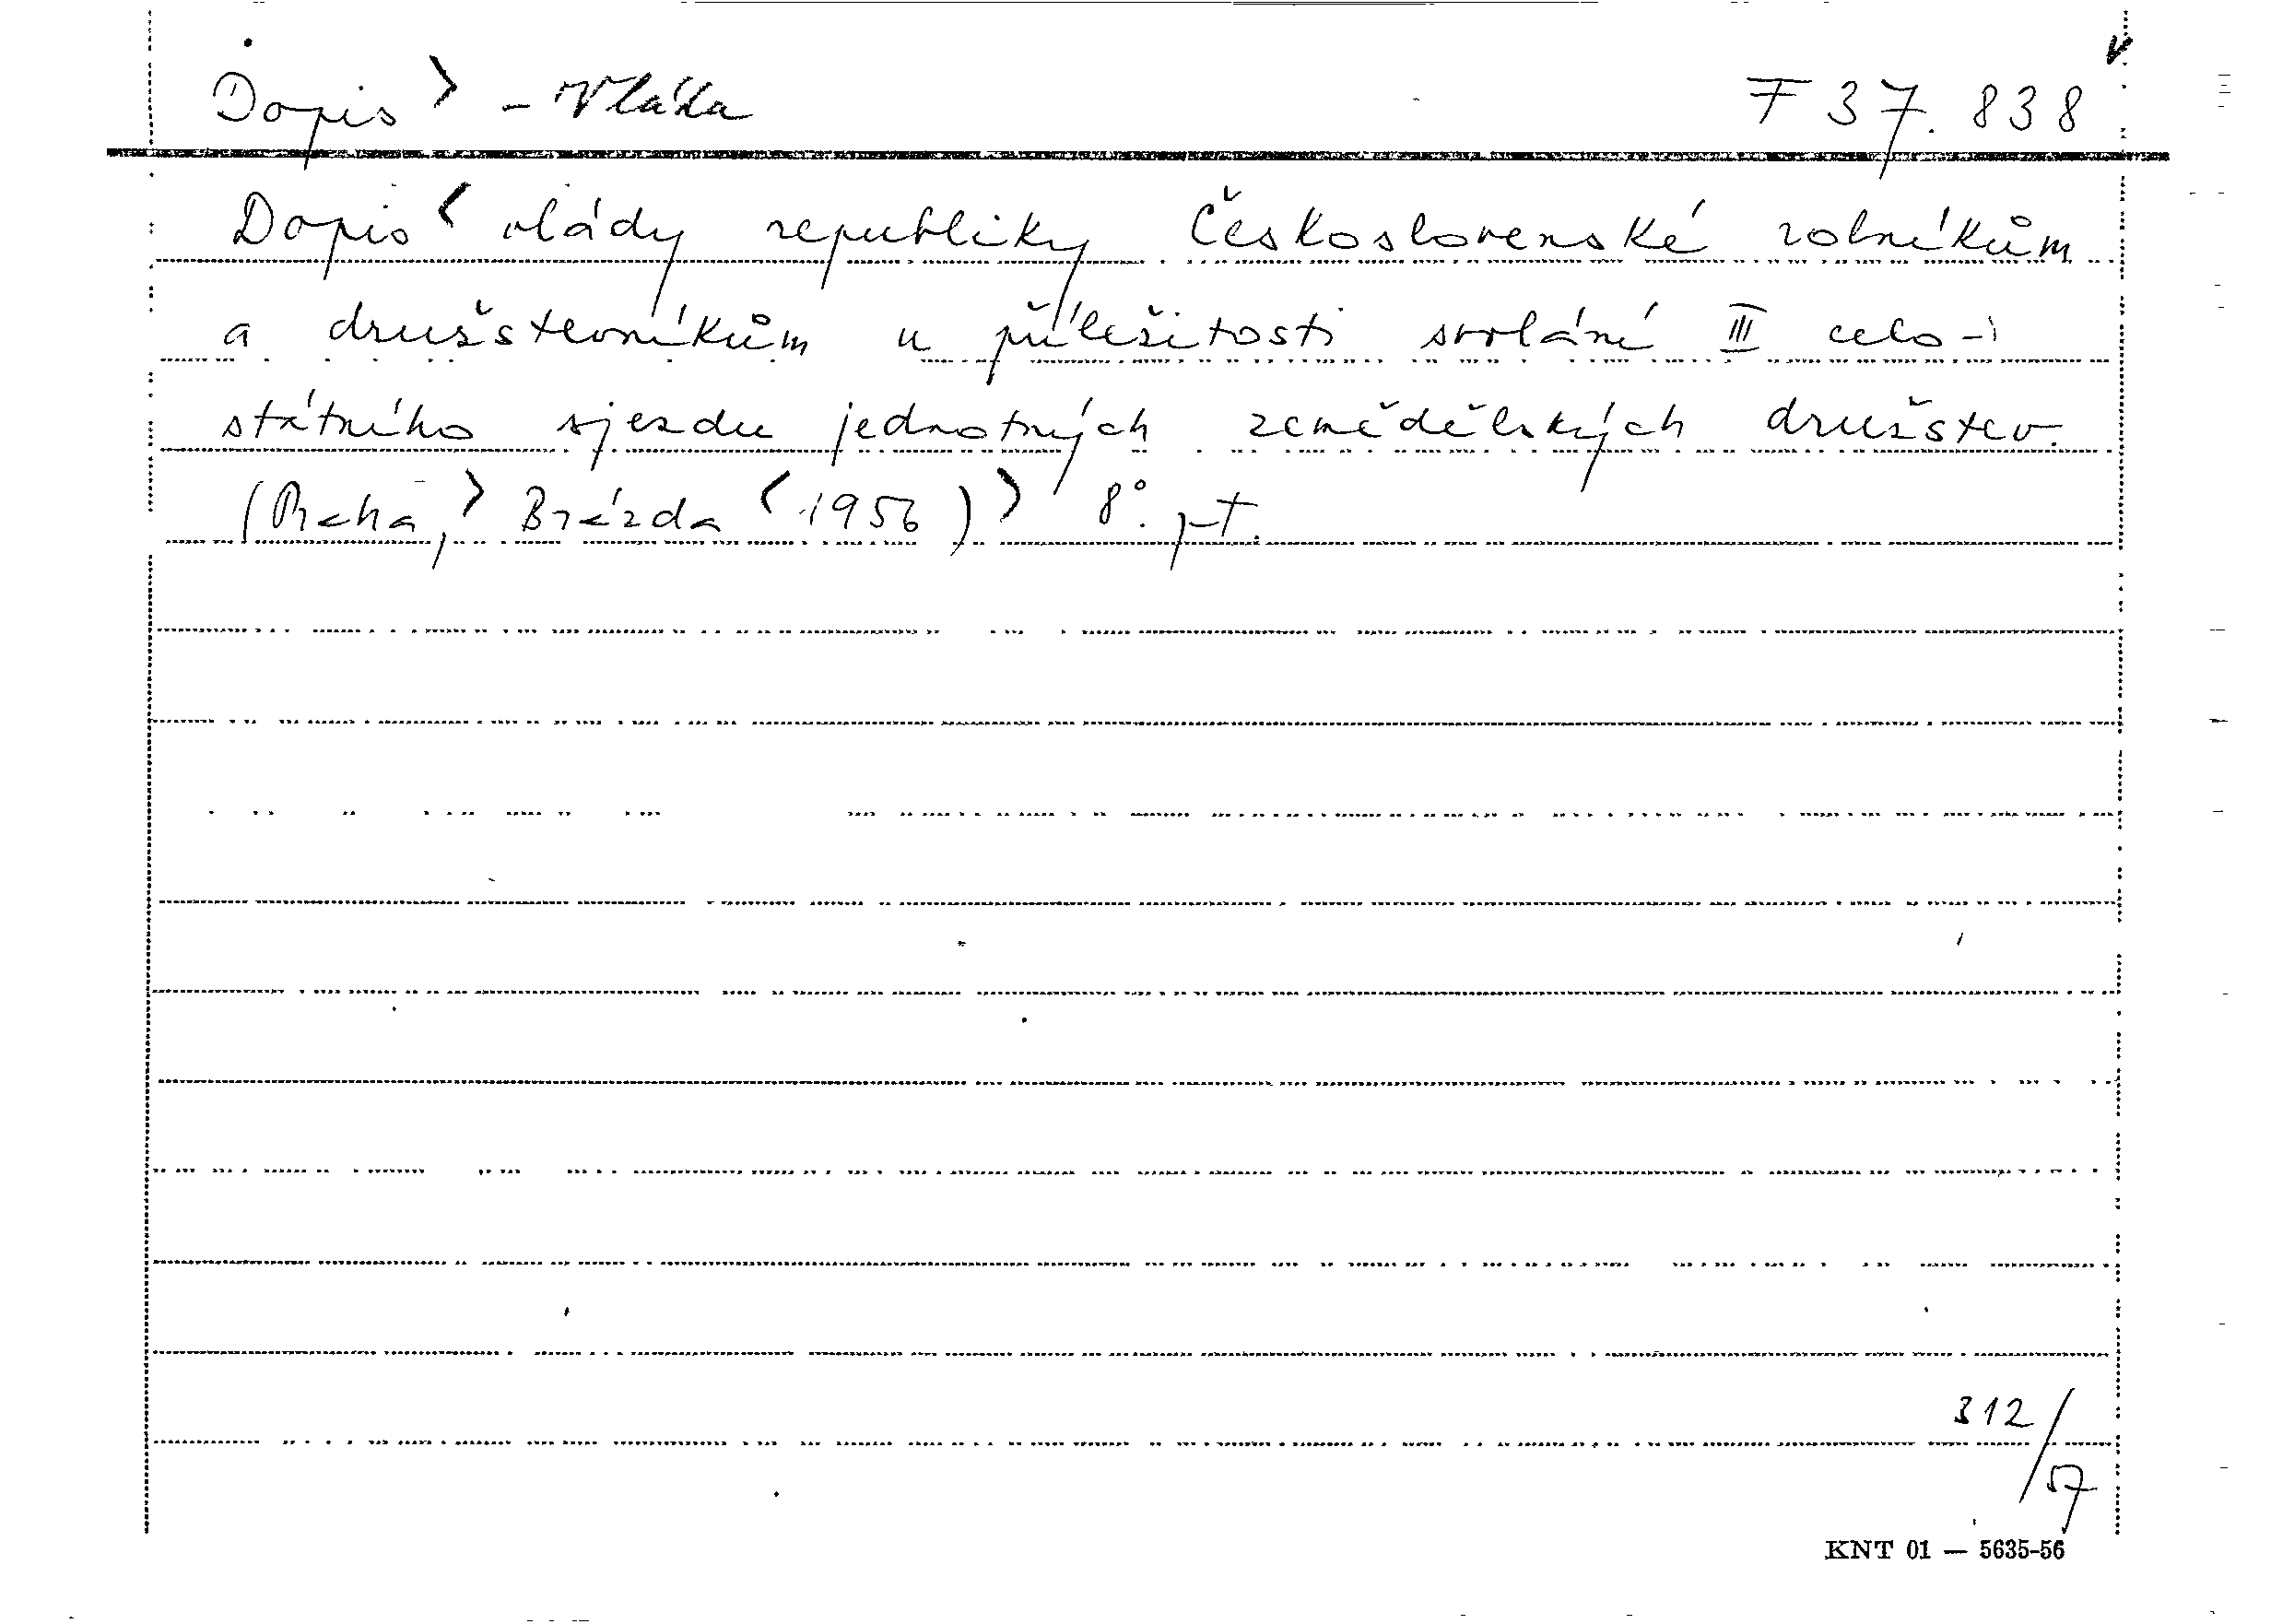 Dopis > - Vláda F 37.838
Dopis < vlády republiky Československé rolníkům
a družstevníkům u příležitosti svolání III celo-
státního sjezdu jednotných zemědělských družstev.
(Praha, > Brázda < 1956) > 8°. pt.
312/57
KNT 01 — 5635-56